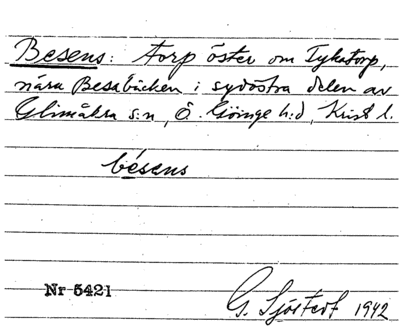 Besens: torp öster om Tykatorp,
nära Besabäcken i sydöstra delen av
Glimåkra s:n, Ö. Göinge h:d, Krist l.
bésens
Nr 5421
G. Sjöstedt 1942